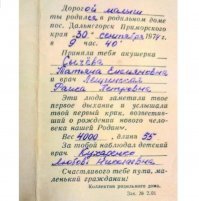 Дорогой малыш
ты родился в родильном доме
пос. Дальнегорск Приморского
края „30“ сентября 1974 г. в
9 час. 40'
Приняли тебя акушерка
Сычёва
Татьяна Емельяновна
и врач Лещинская
Раиса Петровна
Эти люди заметили твое
первое дыхание и услышали
твой первый крик, возвестивший
о рождении нового гражданина
нашей Родины.
Вес 4000, длина 55
За тобой наблюдал детский
врач Кухаренко
Любовь Николаевна
Счастливого тебе пути, маленький гражданин!
Коллектив родильного дома.
Зак. № 2.01